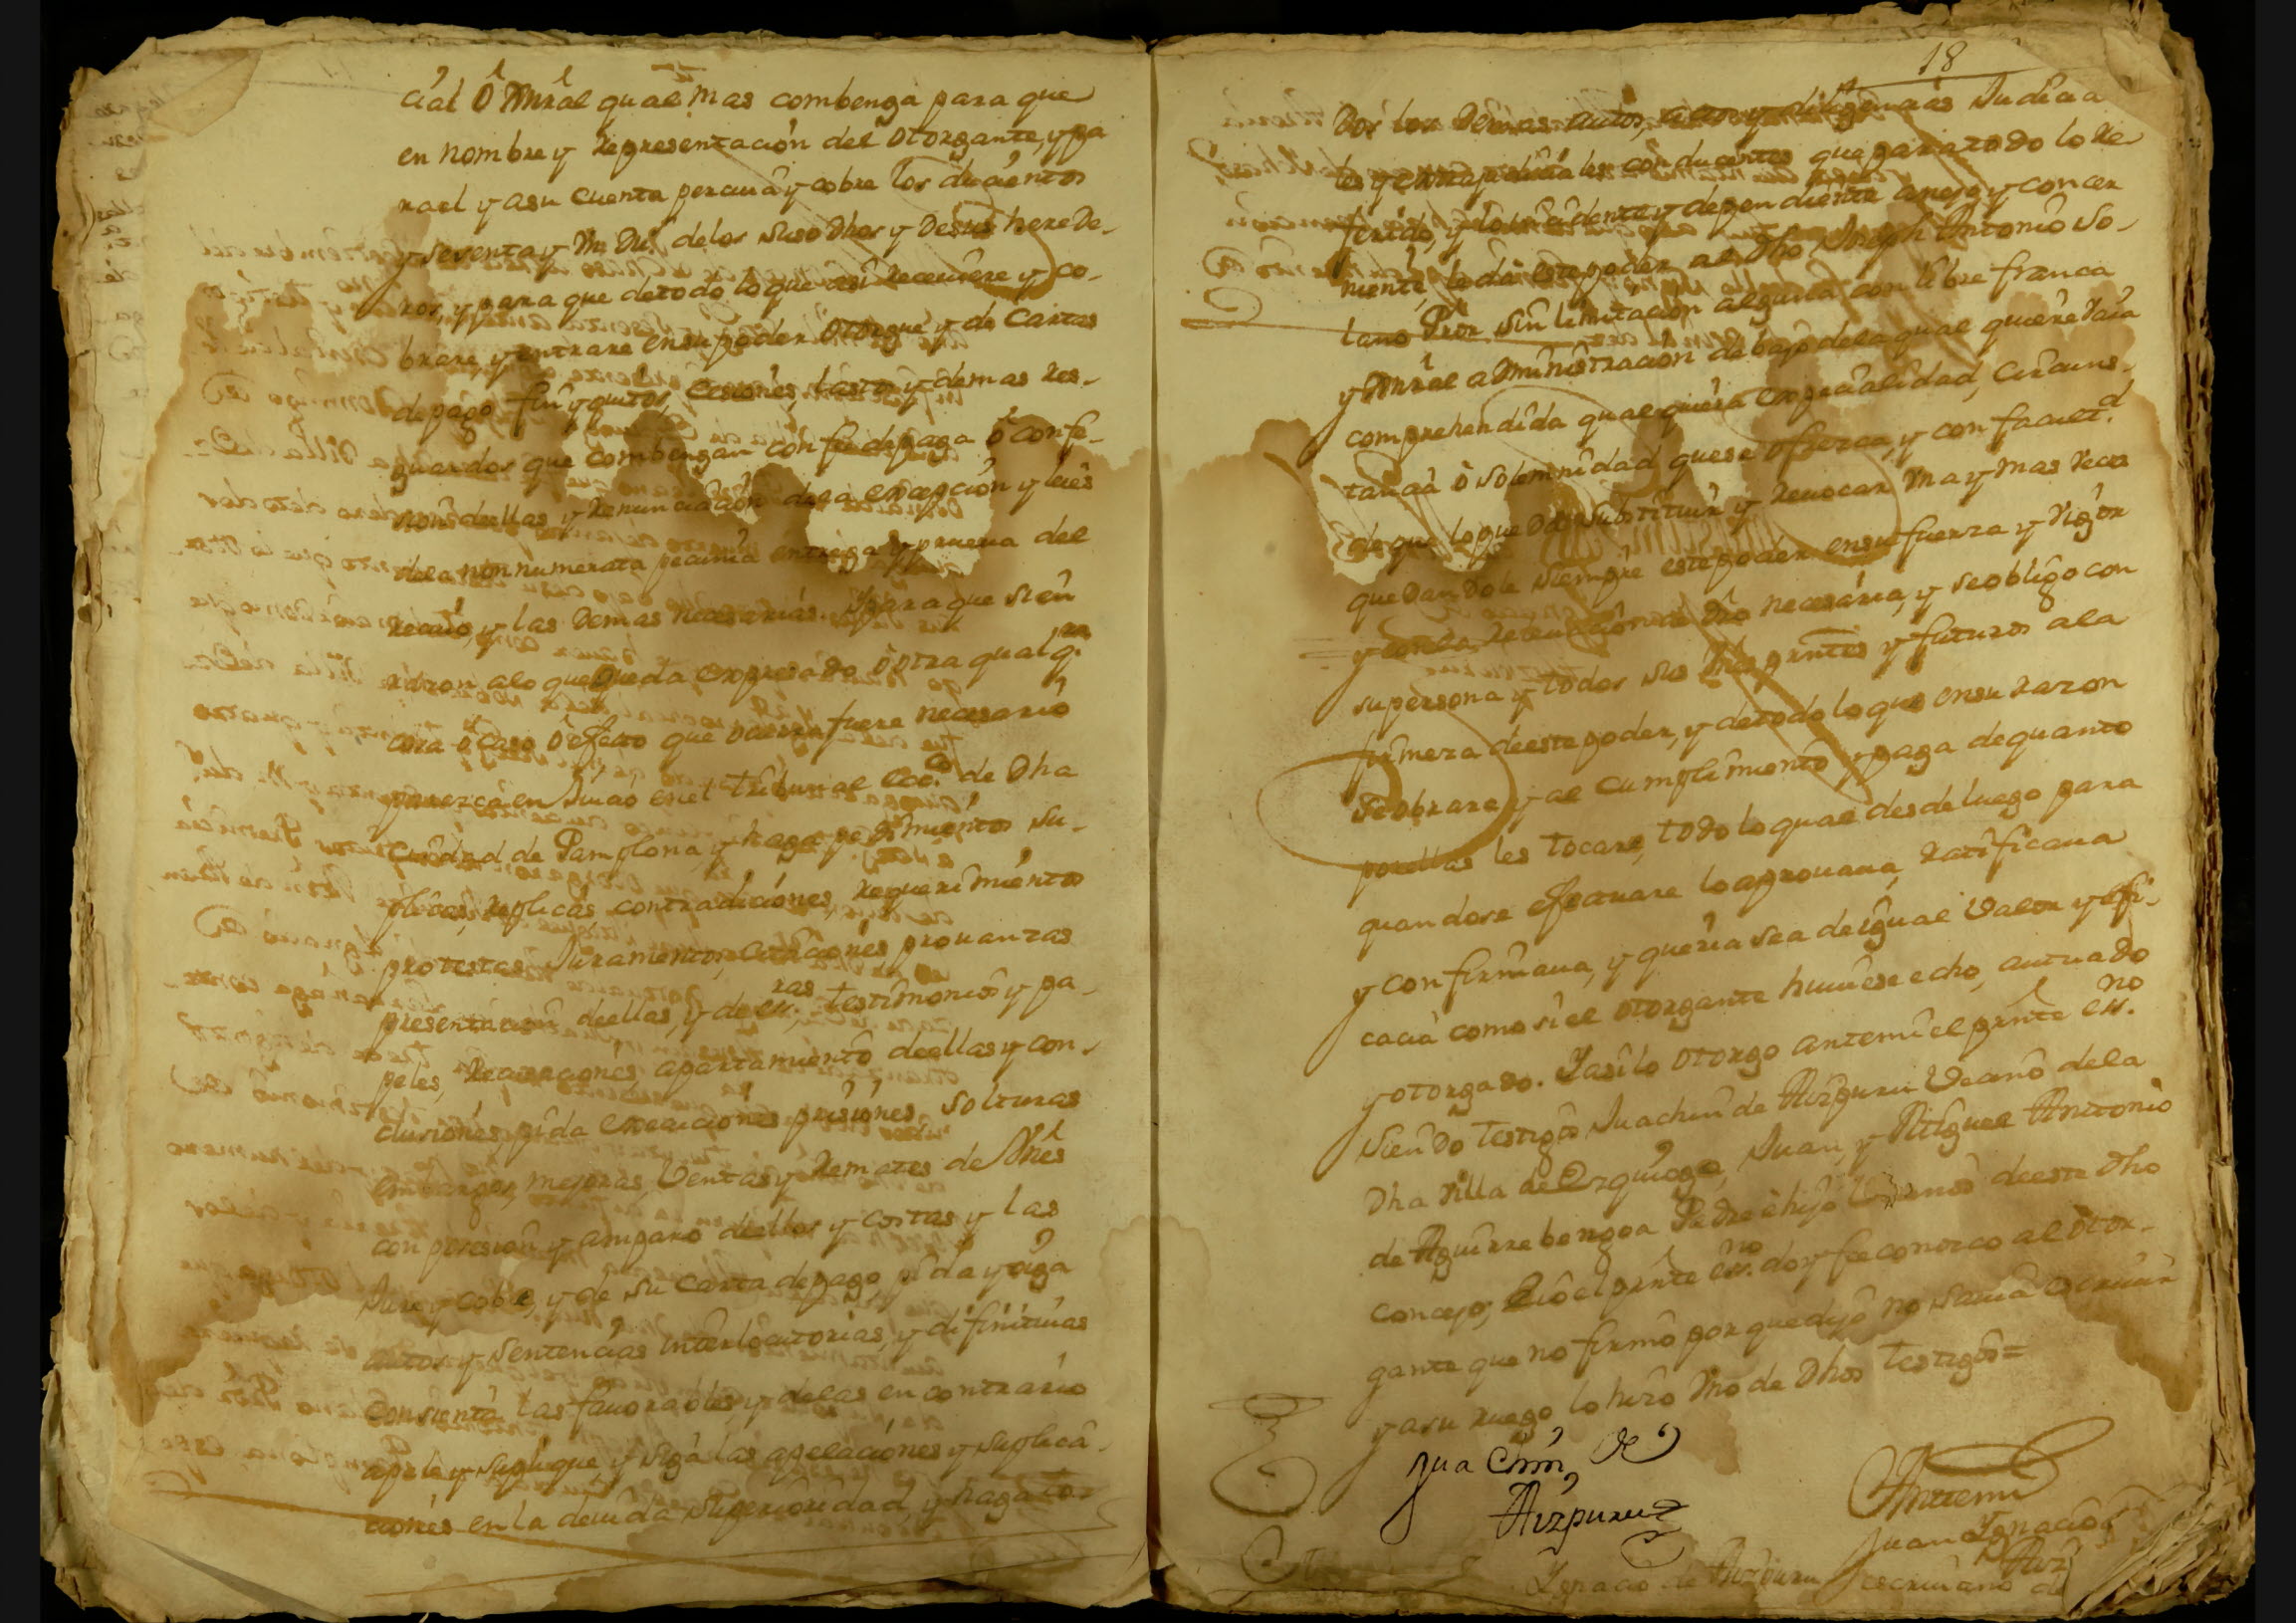 cial ô Gnral qual mas combenga para que
en nombre y Representacion del Otorgante, y pa
rael y asu cuenta perciua y cobre los ducientos
y sesenta y Un Dus. delos suso dhos y desus herede-
ros, y para que detodo lo que asi Reciuiere y co-
brare, y entrare ensu poder Otorgue y de Cartas
depago finyquitos, Cesiones, lastos y demas Res-
guardos que combengan con fee depaga ô confe-
sion deellas y Renunciacion dela excepcion y leies
dela non numerata pecunia entrega y prueua del
Reciuo, y las Demas necesarias. Y para que sien
Razon alo que queda expresado ô otra qualq.ra
cosa ô caso ô efecto que ocurra fuere necesario
parezca en Juicio enel tribunal Ecc.co de Dha
Ciudad de Pamplona, y haga pedimientos su-
plicas, Replicas contradiciones, Requerimientos
protestas Juramentos, citaciones prouanzas
presentacion deellas, y de ess.ras testimonios y pa-
peles, Recusaciones, apartamiento deellas y con-
clusiones, pida execuciones prisiones, solturas
embargos, mejoras, Ventas y Remates de Vnes
con posesion y amparo deellos y costas y las
Jure y cobre, y de su Carta depago, pida y oiga
autos y sentencias interlocutorias, y difinitiuas
Consienta las fauorables, y delas en contrario
apele y suplique y siga las apelaciones y suplica-
ciones en la deuida Superioridad, y haga to-
18
dos los Demas autos, actos y diligencias Judicia
les y extrajudiciales conducentes que para todo lo Re
ferido, y lo incidente y dependiente anejo y concer
niente, le da este poder al Dho Joseph Antonio So-
lano Pror sin limitacion alguna con libre franca
y Gnral administracion debajo dela qual quiere Vaia
comprehendida qualquiera Especialidad, Circuns-
tancia ô solemnidad quese ofrezca, y con facult.d
de que lo pueda substituir y Reuocar Una y mas Veces
quedandole siempre este poder ensu fuerza y Vigor
y con la Releuacion de Dro necesaria, y se obligo con
su persona y todos sus Vnes prntes y futuros ala
firmeza deeste poder, y detodo lo que ensu Razon
se obrare, y al Cumplimiento y paga dequanto
porellas les tocare, todo lo qual desde luego para
quandose efectuare lo aprouaua, Ratificaua
y confirmaua, y queria sea de igual Valor y efi-
cacia como si el otorgante huuiese echo, autuado
y otorgado. Y asi lo otorgo antemi el prnte ess.no
siendo testigos Juachin de Aizpuru Vecino dela
Dha Villa de Ezquioga, Juan, y Miguel Antonio
de Aguirrebengoa Padre è hijo Vecinos deeste Dho
Concejo, E io el prnte ess.no doy fee conozco al otor-
gante que no firmo por que dijo no sauia escriuir
y asu ruego lo hizo Uno de Dhos testigos =
Juachin de
Aizpuru
Antemi
Juan Ignacio
Ignacio de Aizpuru escriuano de